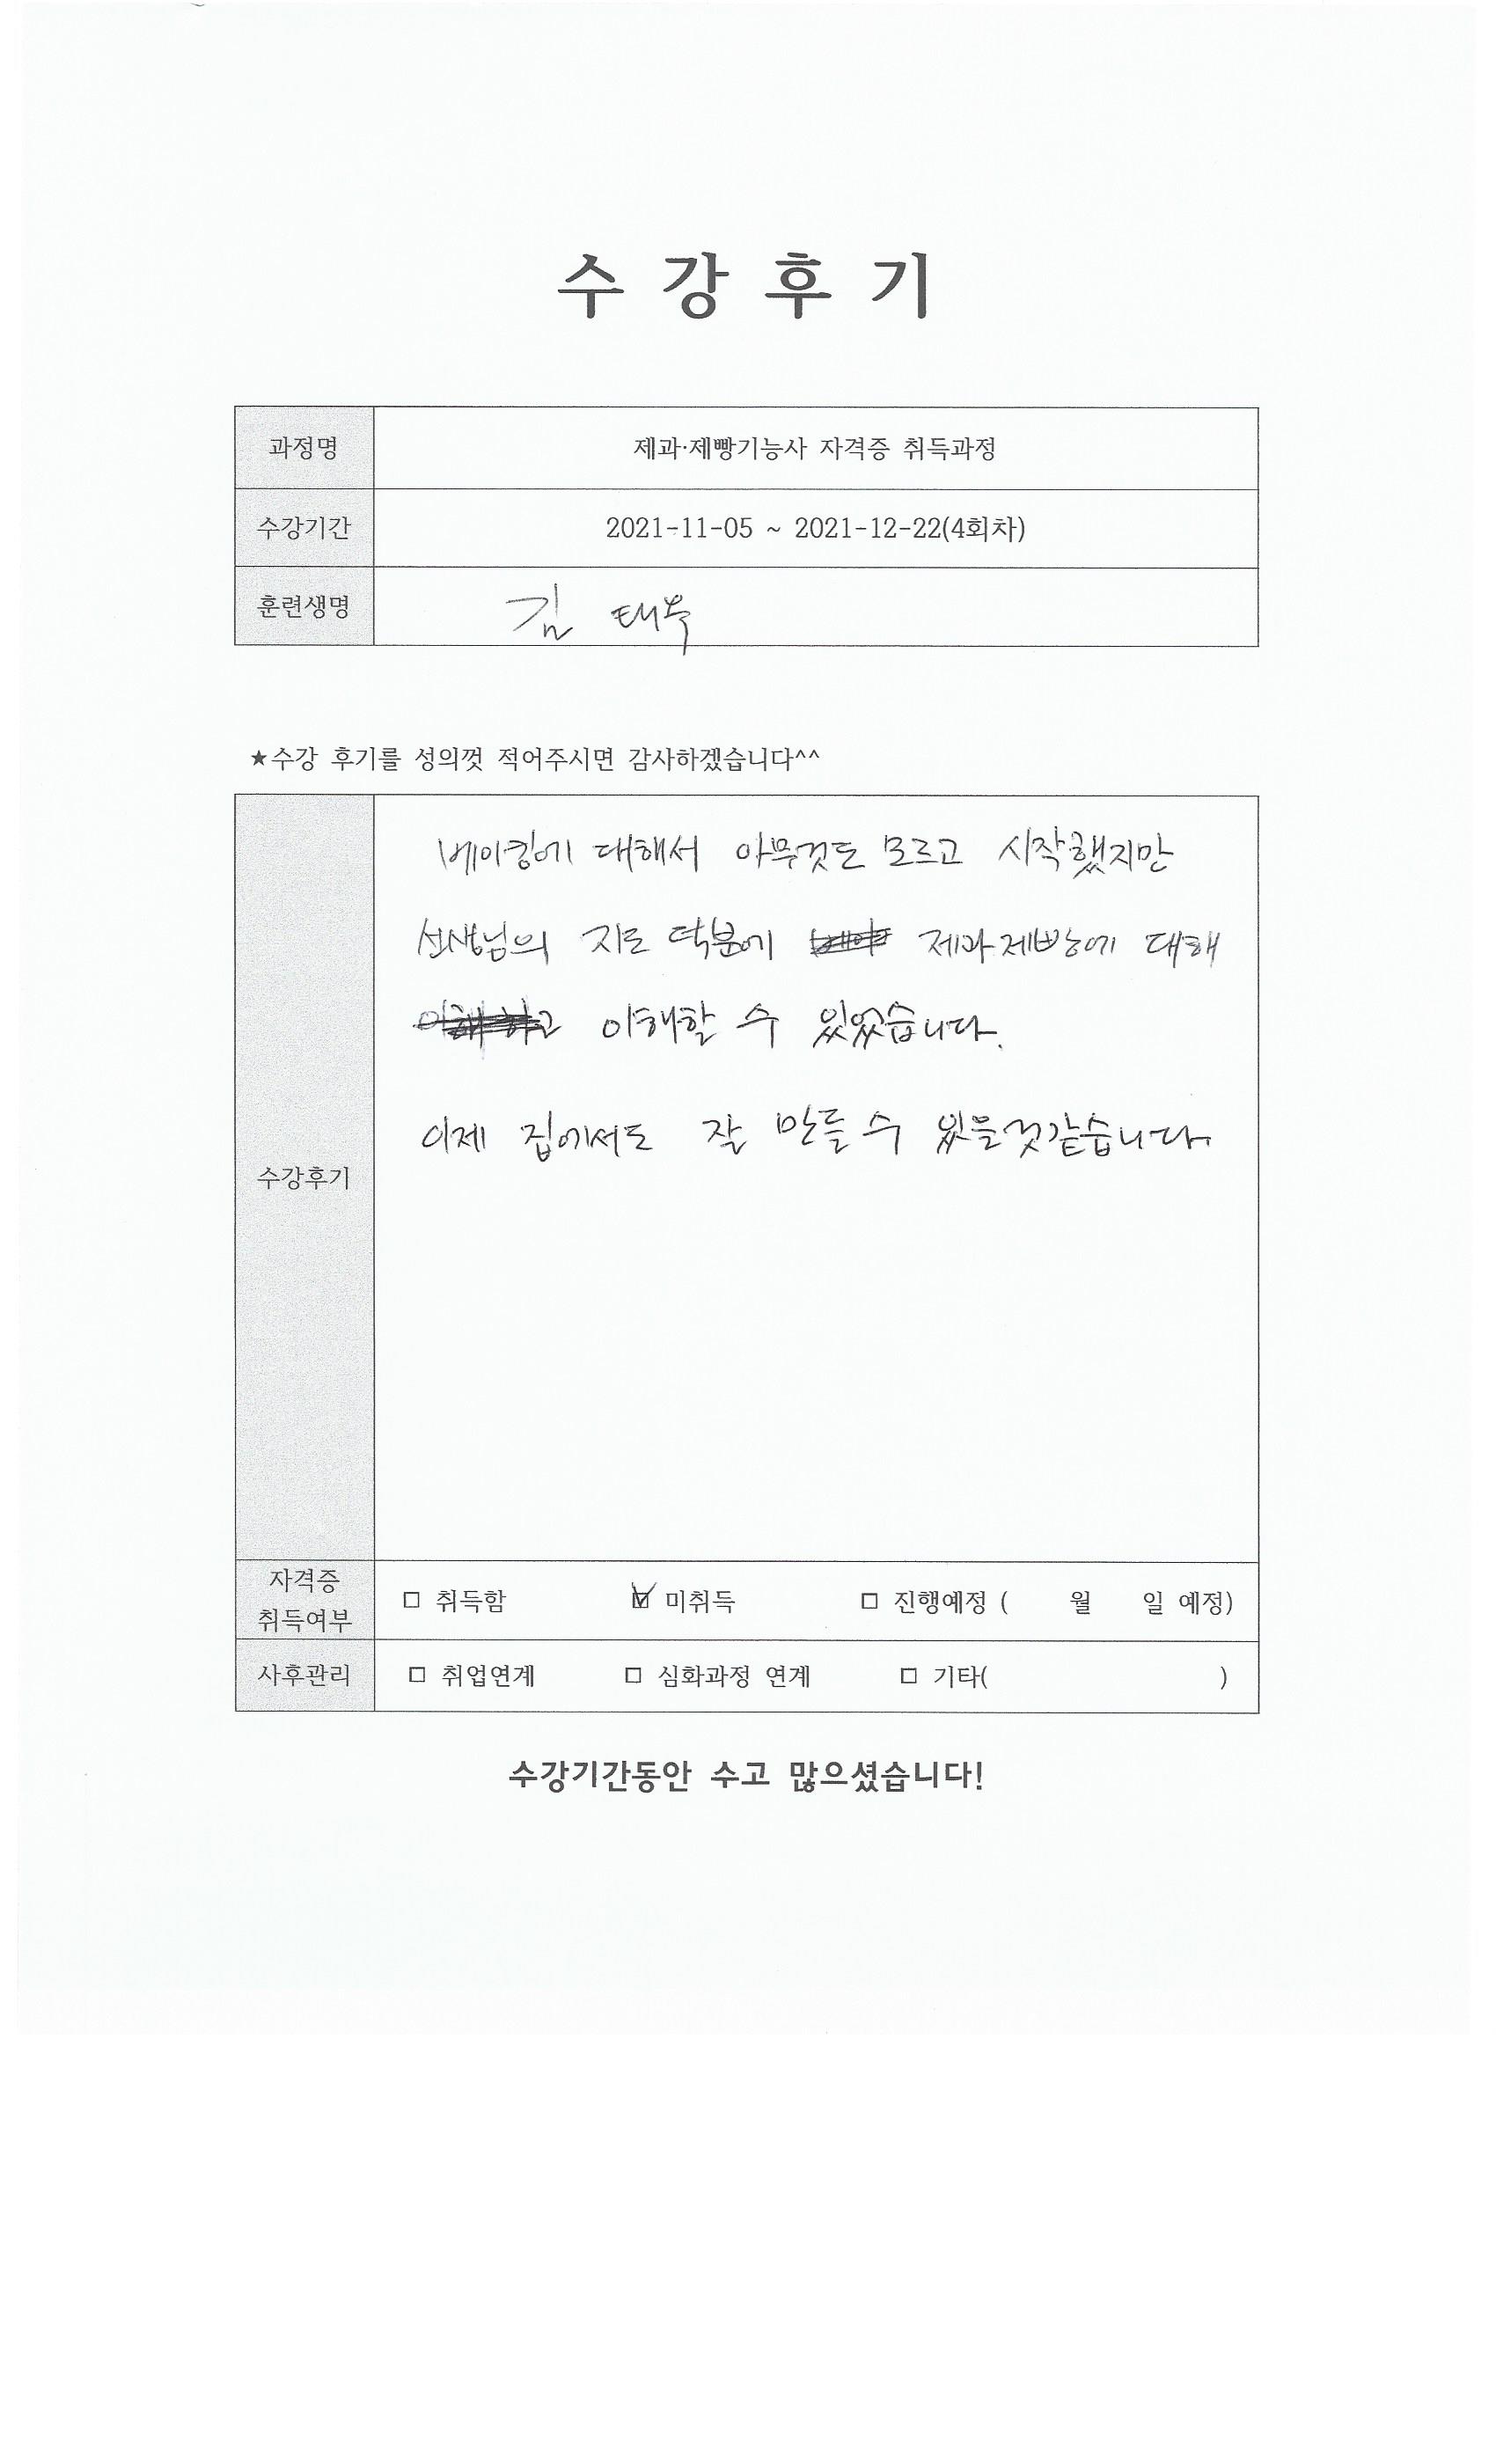 수 강 후 기
과정명 제과·제빵기능사 자격증 취득과정
수강기간 2021-11-05 ~ 2021-12-22(4회차)
훈련생명 김 태우
★수강 후기를 성의껏 적어주시면 감사하겠습니다^^
수강후기
베이킹에 대해서 아무것도 모르고 시작했지만
선생님의 지도 덕분에 제과제빵에 대해
이해할 수 있었습니다.
이제 집에서도 잘 만들 수 있을것같습니다.
자격증
취득여부
□ 취득함 ☑ 미취득 □ 진행예정 ( 월 일 예정)
사후관리 □ 취업연계 □ 심화과정 연계 □ 기타( )
수강기간동안 수고 많으셨습니다!